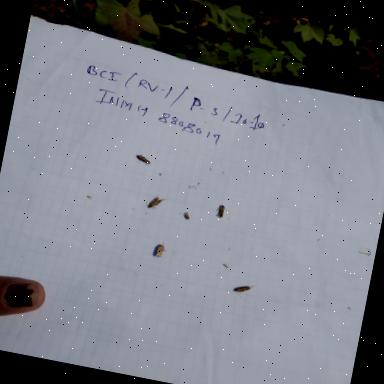 BCI / RV-1 / P.3 / 2020
INMH 8808017